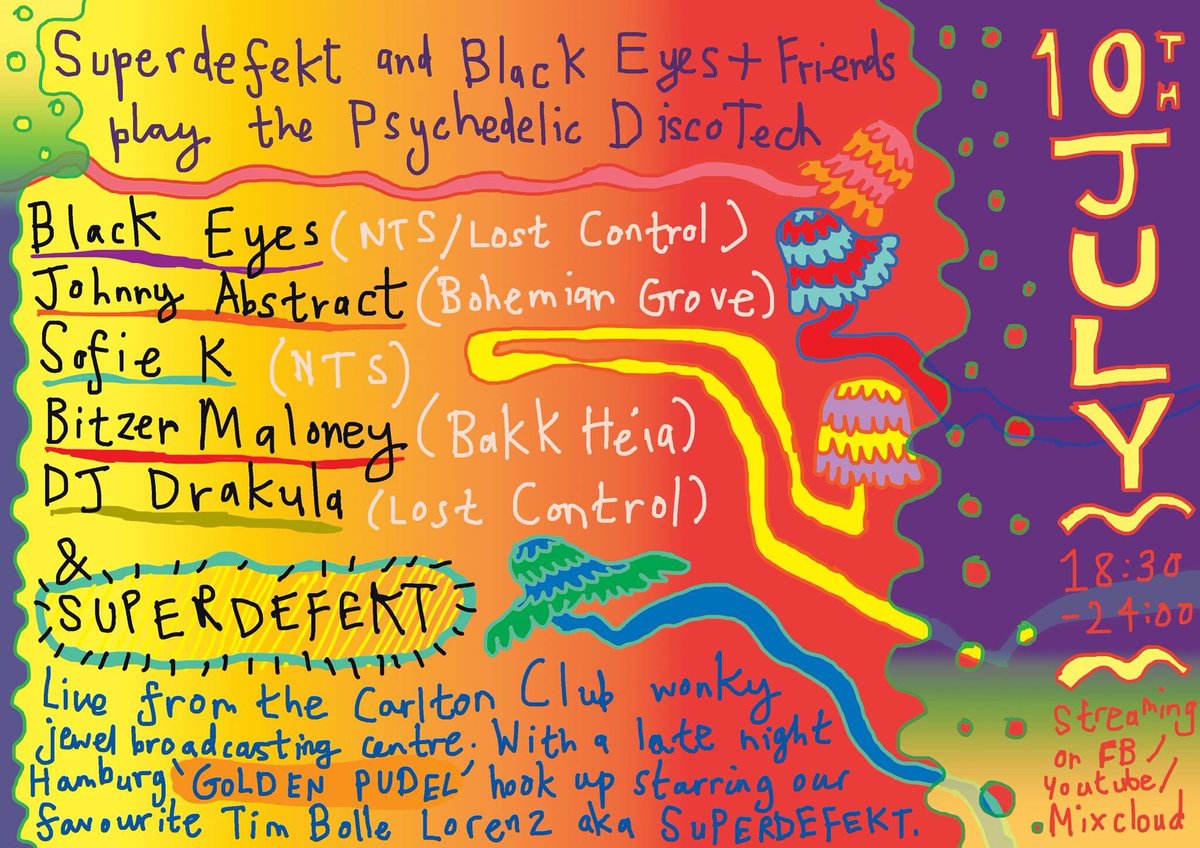 Superdefekt and Black Eyes + Friends
play the Psychedelic DiscoTech
Black Eyes (NTS/Lost Control)
Johnny Abstract (Bohemian Grove)
Sofie K (NTS)
Bitzer Maloney (Bakk Heia)
DJ Drakula (Lost Control)
&
SUPERDEFEKT
Live from the Carlton Club wonky
jewel broadcasting centre. With a late night
Hamburg 'GOLDEN PUDEL' hook up starring our
favourite Tim Bolle Lorenz aka SUPERDEFEKT.
10TH
JULY
18:30
-24:00
Streaming
on FB/
Youtube/
Mixcloud